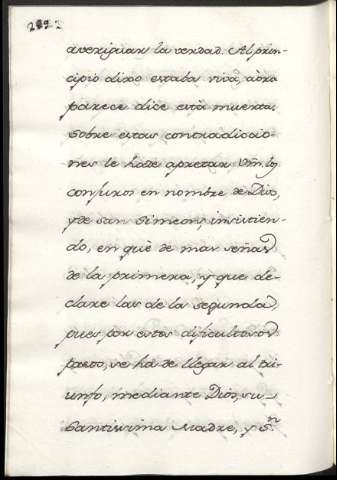 averiguar la verdad. Al prin-
cipio dixo estaba viva, aora
parece dice está muerta,
sobre estas contradiccio-
nes le hade apretar Vm. los
conjuros en nombre de Dios,
y de San Simeon, insistien-
do, en què dè mas señas
de la primera, y que de-
clare las de la segunda,
pues por estos dificultosos
pasos, se ha de llegar al tri-
unfo, mediante Dios, su
Santissima Madre, y S.n